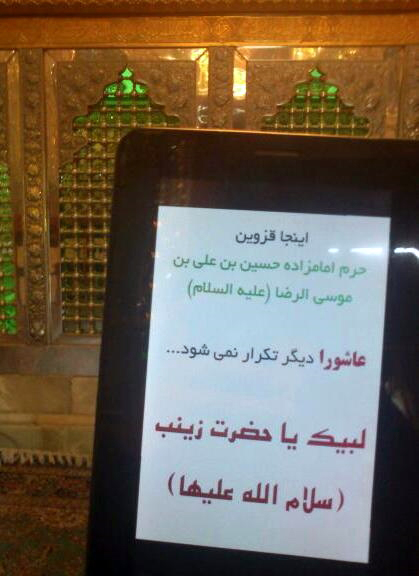 اینجا قزوین
حرم امامزاده حسین بن علی بن
موسی الرضا (علیه السلام)
عاشورا دیگر تکرار نمی شود...
لبیک یا حضرت زینب
(سلام الله علیها)